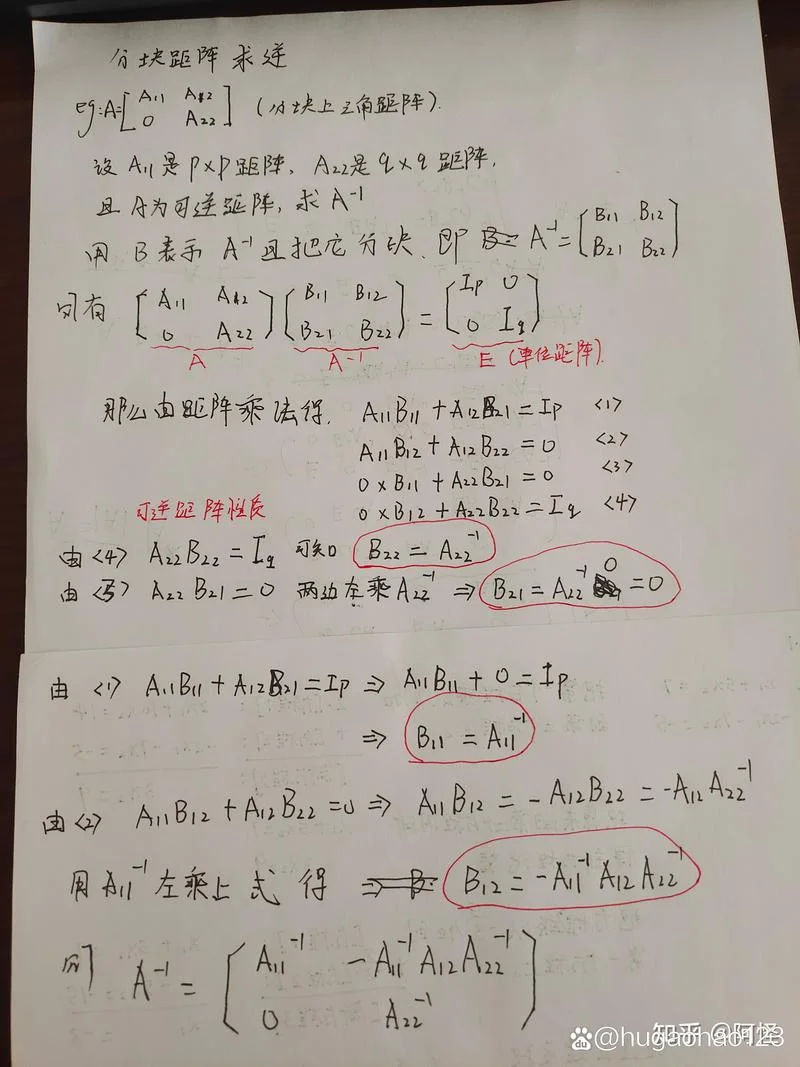 分块距阵求逆
eg:A=[A11 A12
0 A22] (分块上三角距阵).
设 A11是 p×p 距阵, A22是 q×q 距阵,
且 A为可逆距阵, 求 A⁻¹
用 B 表示 A⁻¹ 且把它分块. 即 A⁻¹=[B11 B12
B21 B22]
则有 [A11 A12
0 A22] [B11 B12
B21 B22] = [Ip 0
0 Iq]
A A⁻¹ E (单位距阵).
那么由距阵乘法得. A11B11 + A12B21 = Ip <1>
A11B12 + A12B22 = 0 <2>
0×B11 + A22B21 = 0 <3>
可逆距阵性质 0×B12 + A22B22 = Iq <4>
由<4> A22B22 = Iq 可知 B22 = A22⁻¹
由<3> A22B21 = 0 两边左乘A22⁻¹ ⇒ B21 = A22⁻¹ 0 = 0
由 <1> A11B11 + A12B21 = Ip ⇒ A11B11 + 0 = Ip
⇒ B11 = A11⁻¹
由<2> A11B12 + A12B22 = 0 ⇒ A11B12 = -A12B22 = -A12A22⁻¹
用A11⁻¹左乘上式得 B12 = -A11⁻¹A12A22⁻¹
则 A⁻¹ = (A11⁻¹ -A11⁻¹A12A22⁻¹
0 A22⁻¹)
知乎 @阿怪
Bai du @hugaohao123